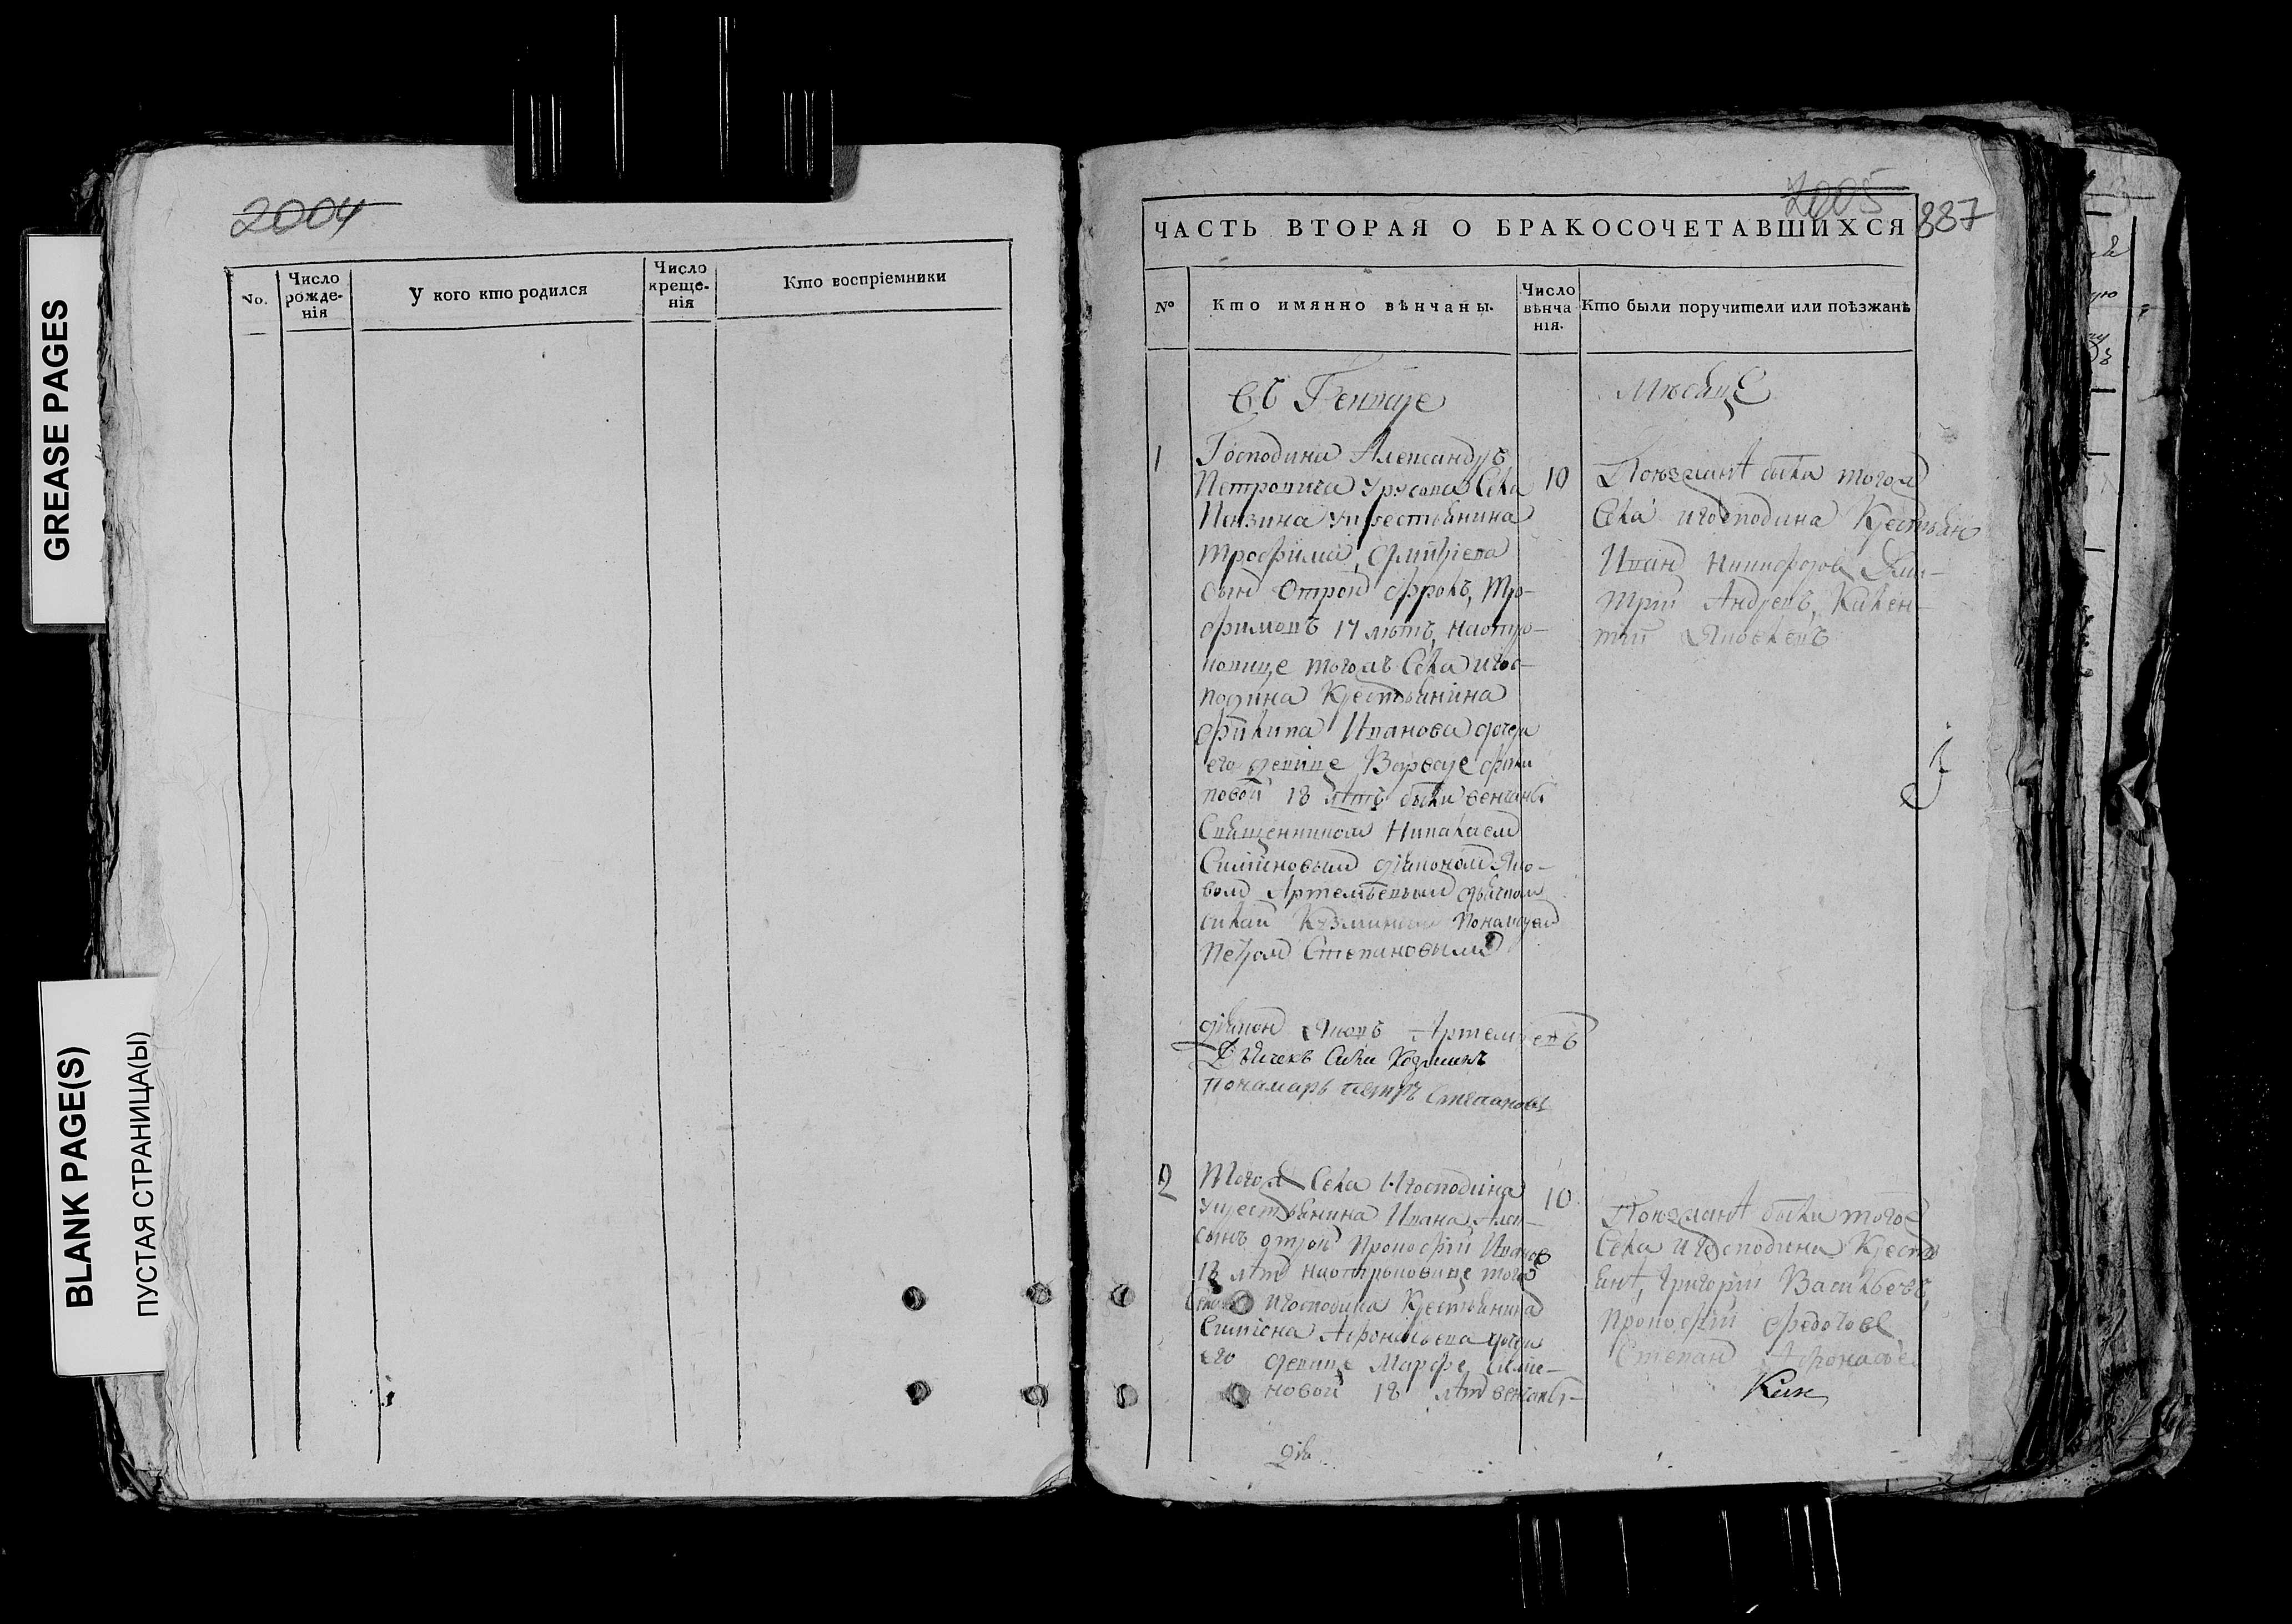 GREASE PAGES
BLANK PAGE(S)
ПУСТАЯ СТРАНИЦА(Ы)
2004
No.
Число рожде-нія
У кого кто родился
Число креще-нія
Кто воспріемники
2005
887
ЧАСТЬ ВТОРАЯ О БРАКОСОЧЕТАВШИХСЯ
№
Кто имянно вѣнчаны.
Число вѣнча нія.
Кто были поручители или поѣзжанѣ
въ Генваре
Мѣсяце
1
Господина Александръ
Петровича Урусова Села
крестьянина
Трофима
сынъ Отрокъ Фролъ, Тро-
фимовъ 17 лѣтъ, наотро-
ковице тогожъ Села игос-
подина Крестьянина
Филипа Иванова дочери
его девице Варваре Фили
повой 18 лѣтъ были венчаны
Священникомъ Николаемъ
Симионовымъ діякономъ Яко-
вомъ Артемьевымъ дьячкомъ
Кузминымъ Понамаремъ
Петромъ Степановымъ
10
Поезжанѣ были тогожъ
Села игосподина Крестьян
Иванъ Никифоровъ Дми-
трій Андреевъ,
тій Яковлевъ
діяконъ Яковъ Артемьевъ
Дьячекъ Козминъ
понамарь петръ Степановъ
2
Тогожъ Села Игосподина
крестьянина Ивана
сынъ отрокъ Прокофій Ивановъ
18 лѣтъ наотроковице тогожъ
села игосподина Крестьянина
Симиона Афонасьева дочери
его девице Марфе Симио-
новой 18 лѣтъ венчаны
10
Поезжанѣ были тогожъ
Села Игосподина Кресть
янѣ, Григорій Васильевъ,
Прокофій Федотовъ
Степанъ Афонасье